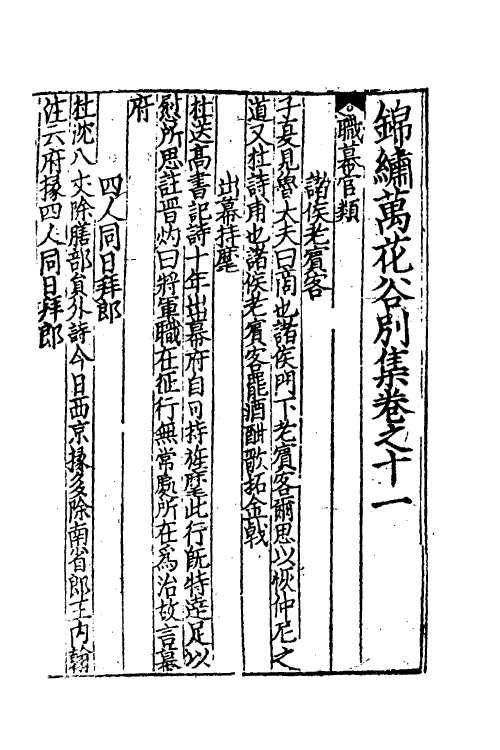 錦繡萬花谷別集卷之十一
職幕官類
諸侯老賓客
子夏見魯大夫曰商也諸侯門下老賓客爾思以恢仲尼之
道又杜詩甫也諸侯老賓客罷酒酣歌拓金戟
出幕持麾
杜送高書記詩十年出幕府自可持旌麾此行旣特達足以
慰所思註晋灼曰將軍職在征行無常處所在爲治故言幕
府
四人同日拜郎
杜沈八丈除膳部員外詩今日西京掾多除南省郎王内翰
注云府掾四人同日拜郎